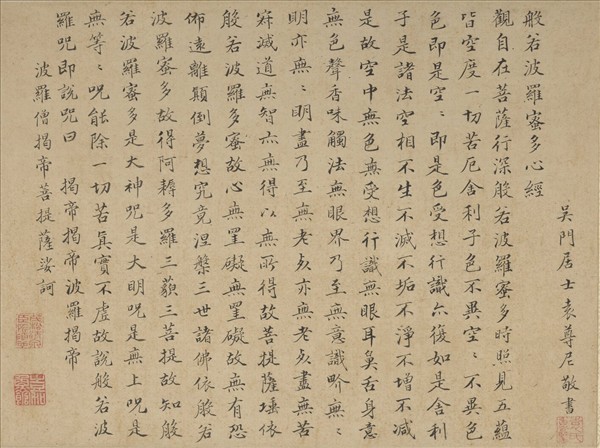 吳門居士袁尊尼敬書
般若波羅蜜多心經
觀自在菩薩行深般若波羅蜜多時照見五蘊
皆空度一切苦厄舍利子色不異空〻不異色
色即是空〻即是色受想行識亦復如是舍利
子是諸法空相不生不滅不垢不淨不增不減
是故空中無色無受想行識無眼耳鼻舌身意
無色聲香味觸法無眼界乃至無意識界無〻
明亦無〻明盡乃至無老死亦無老死盡無苦
滅道無智亦無得以無所得故菩提薩埵依
般若波羅蜜多故心無罣礙無罣礙故無有恐
怖遠離顛倒夢想究竟涅槃三世諸佛依般若
波羅蜜多故得阿耨多羅三藐三菩提故知般
若波羅蜜多是大神咒是大明咒是無上咒是
無等〻咒能除一切苦真實不虛故說般若波
羅咒即說咒曰 揭帝揭帝波羅揭帝
波羅僧揭帝菩提薩娑訶